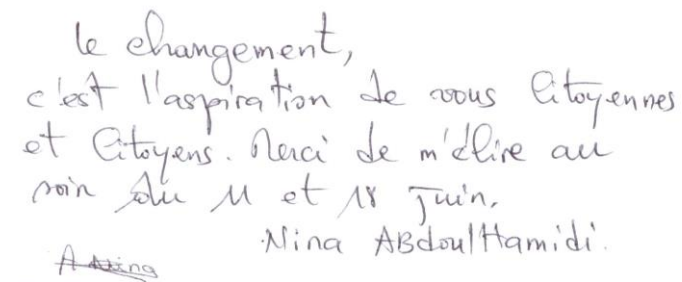 le changement,
c'est l'aspiration de vous Citoyennes
et Citoyens. Merci de m'élire au
soin du 11 et 18 Juin.
Nina ABdoulHamidi.